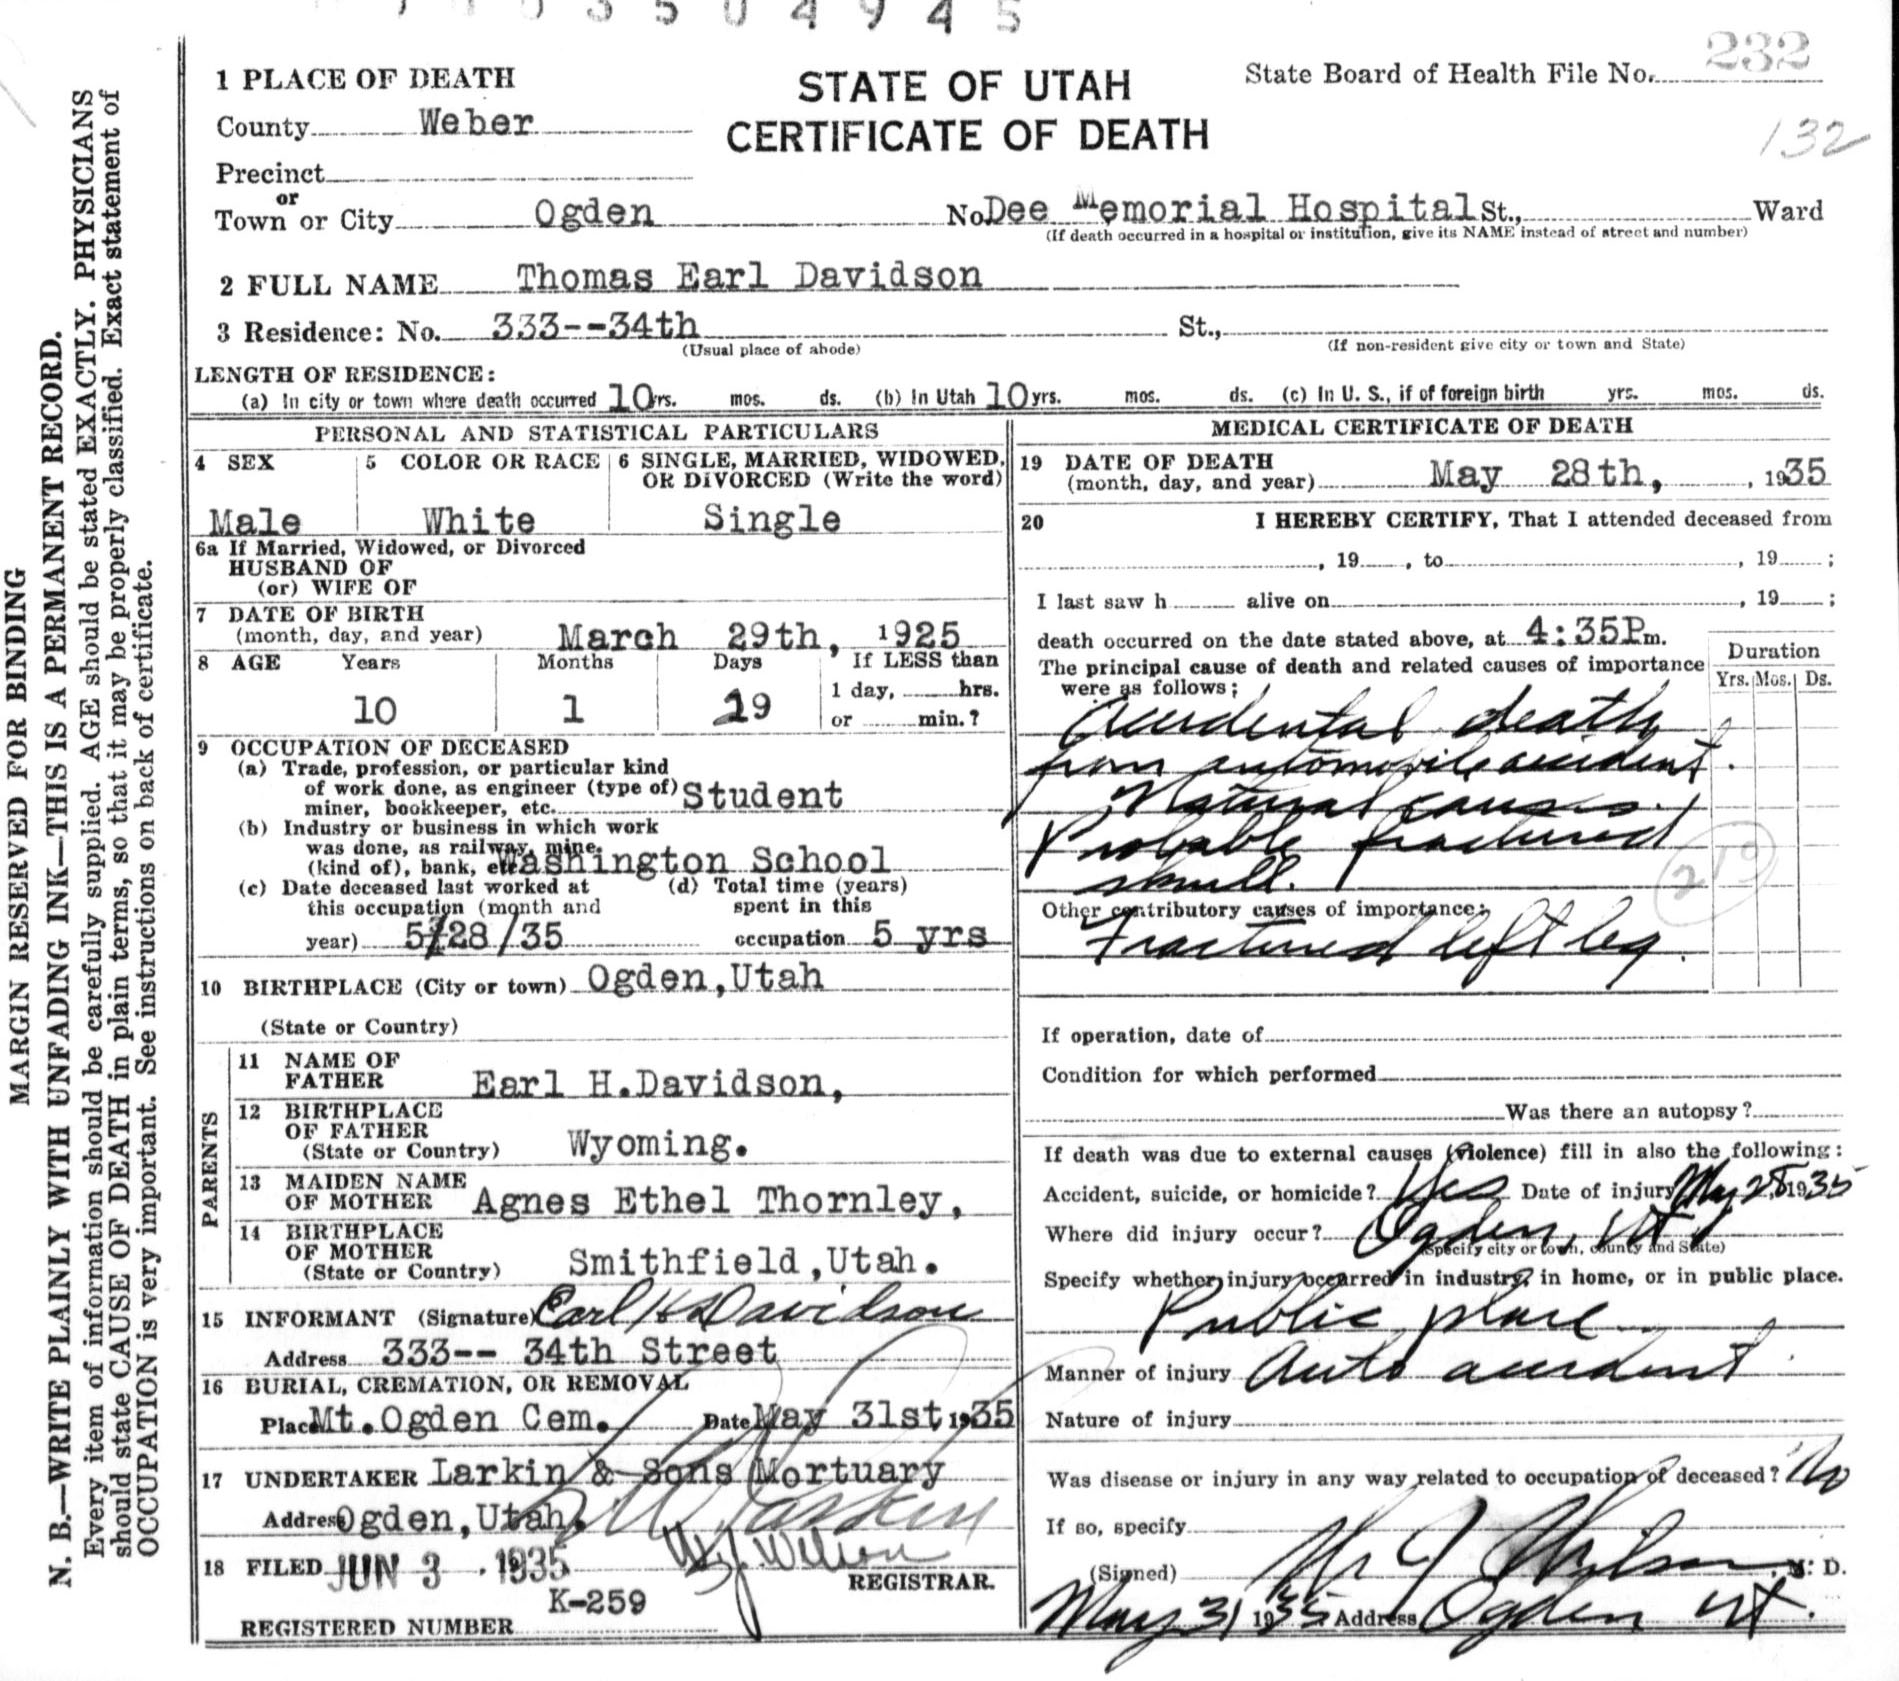 3504945
232
1 PLACE OF DEATH
STATE OF UTAH
CERTIFICATE OF DEATH
State Board of Health File No.
132
County Weber
Precinct
or
Town or City Ogden No. Dee Memorial Hospital St., Ward
(If death occurred in a hospital or institution, give its NAME instead of street and number)
2 FULL NAME Thomas Earl Davidson
3 Residence: No. 333--34th St.,
(Usual place of abode) (If non-resident give city or town and State)
LENGTH OF RESIDENCE:
(a) In city or town where death occurred 10 yrs. mos. ds. (b) In Utah 10 yrs. mos. ds. (c) In U. S., if of foreign birth yrs. mos. ds.
PERSONAL AND STATISTICAL PARTICULARS
4 SEX 5 COLOR OR RACE 6 SINGLE, MARRIED, WIDOWED, OR DIVORCED (Write the word)
Male White Single
6a If Married, Widowed, or Divorced
HUSBAND OF
(or) WIFE OF
7 DATE OF BIRTH
(month, day, and year) March 29th, 1925
8 AGE Years Months Days If LESS than
1 day, hrs.
10 1 29 or min.?
9 OCCUPATION OF DECEASED
(a) Trade, profession, or particular kind
of work done, as engineer (type of)
miner, bookkeeper, etc. Student
(b) Industry or business in which work
was done, as railway, mine,
(kind of), bank, etc. Washington School
(c) Date deceased last worked at (d) Total time (years)
this occupation (month and spent in this
year) 5/28/35 occupation 5 yrs
10 BIRTHPLACE (City or town) Ogden,Utah
(State or Country)
PARENTS
11 NAME OF
FATHER Earl H.Davidson,
12 BIRTHPLACE
OF FATHER
(State or Country) Wyoming.
13 MAIDEN NAME
OF MOTHER Agnes Ethel Thornley,
14 BIRTHPLACE
OF MOTHER
(State or Country) Smithfield,Utah.
15 INFORMANT (Signature) Earl H Davidson
Address 333-- 34th Street
16 BURIAL, CREMATION, OR REMOVAL
Place Mt.Ogden Cem. Date May 31st 1935
17 UNDERTAKER Larkin & Sons Mortuary
Address Ogden,Utah. Larkin
18 FILED JUN 3, 1935 W. J. Wilson
REGISTRAR.
K-259
REGISTERED NUMBER
MEDICAL CERTIFICATE OF DEATH
19 DATE OF DEATH
(month, day, and year) May 28th, , 1935
20 I HEREBY CERTIFY, That I attended deceased from
, 19 , to , 19 ;
I last saw h alive on , 19 ;
death occurred on the date stated above, at 4:35P m.
The principal cause of death and related causes of importance
were as follows;
Duration
Yrs. Mos. Ds.
Accidental death
from automobile accident.
Natural causes.
Probable fractured
skull.
210
Other contributory causes of importance:
Fractured left leg.
If operation, date of
Condition for which performed
Was there an autopsy?
If death was due to external causes (violence) fill in also the following:
Accident, suicide, or homicide? Yes Date of injury May 28, 1935
Where did injury occur? Ogden, Ut
(Specify city or town, county and State)
Specify whether injury occurred in industry, in home, or in public place.
Public place
Manner of injury Auto accident.
Nature of injury
Was disease or injury in any way related to occupation of deceased? No
If so, specify
(Signed) W J Wilson, M. D.
May 31 1935 Address Ogden Ut.
MARGIN RESERVED FOR BINDING
N. B.—WRITE PLAINLY WITH UNFADING INK—THIS IS A PERMANENT RECORD.
Every item of information should be carefully supplied. AGE should be stated EXACTLY. PHYSICIANS
should state CAUSE OF DEATH in plain terms, so that it may be properly classified. Exact statement of
OCCUPATION is very important. See instructions on back of certificate.